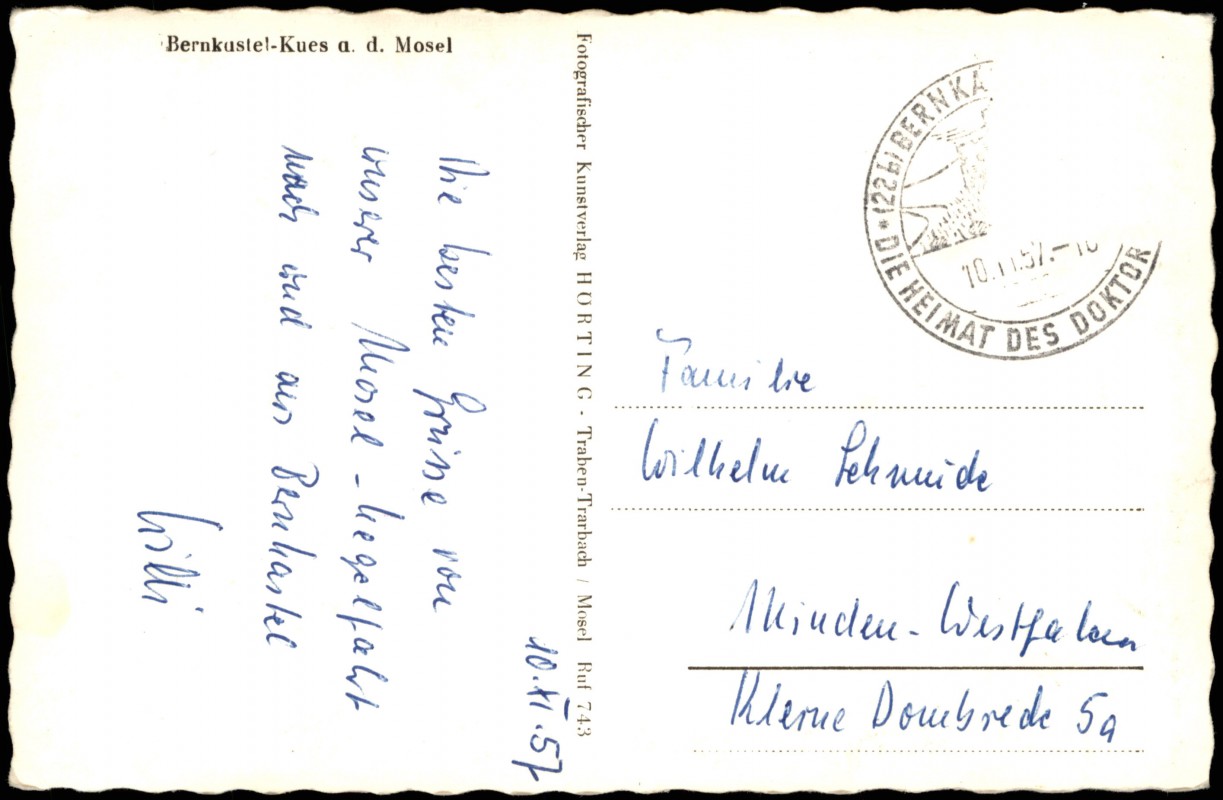 Bernkastel-Kues a. d. Mosel
10.XI.57
Die besten Grüsse von
unserer Mosel-Kegelfahrt
nach und aus Bernkastel
Willi
Fotografischer Kunstverlag HÖRTING - Traben-Trarbach / Mosel Ruf 743
(22b) BERNKA
10.11.57.-
* DIE HEIMAT DES DOKTOR
Familie
Wilhelm Schmide
Minden-Westfalen
Kleine Dombrede 5a